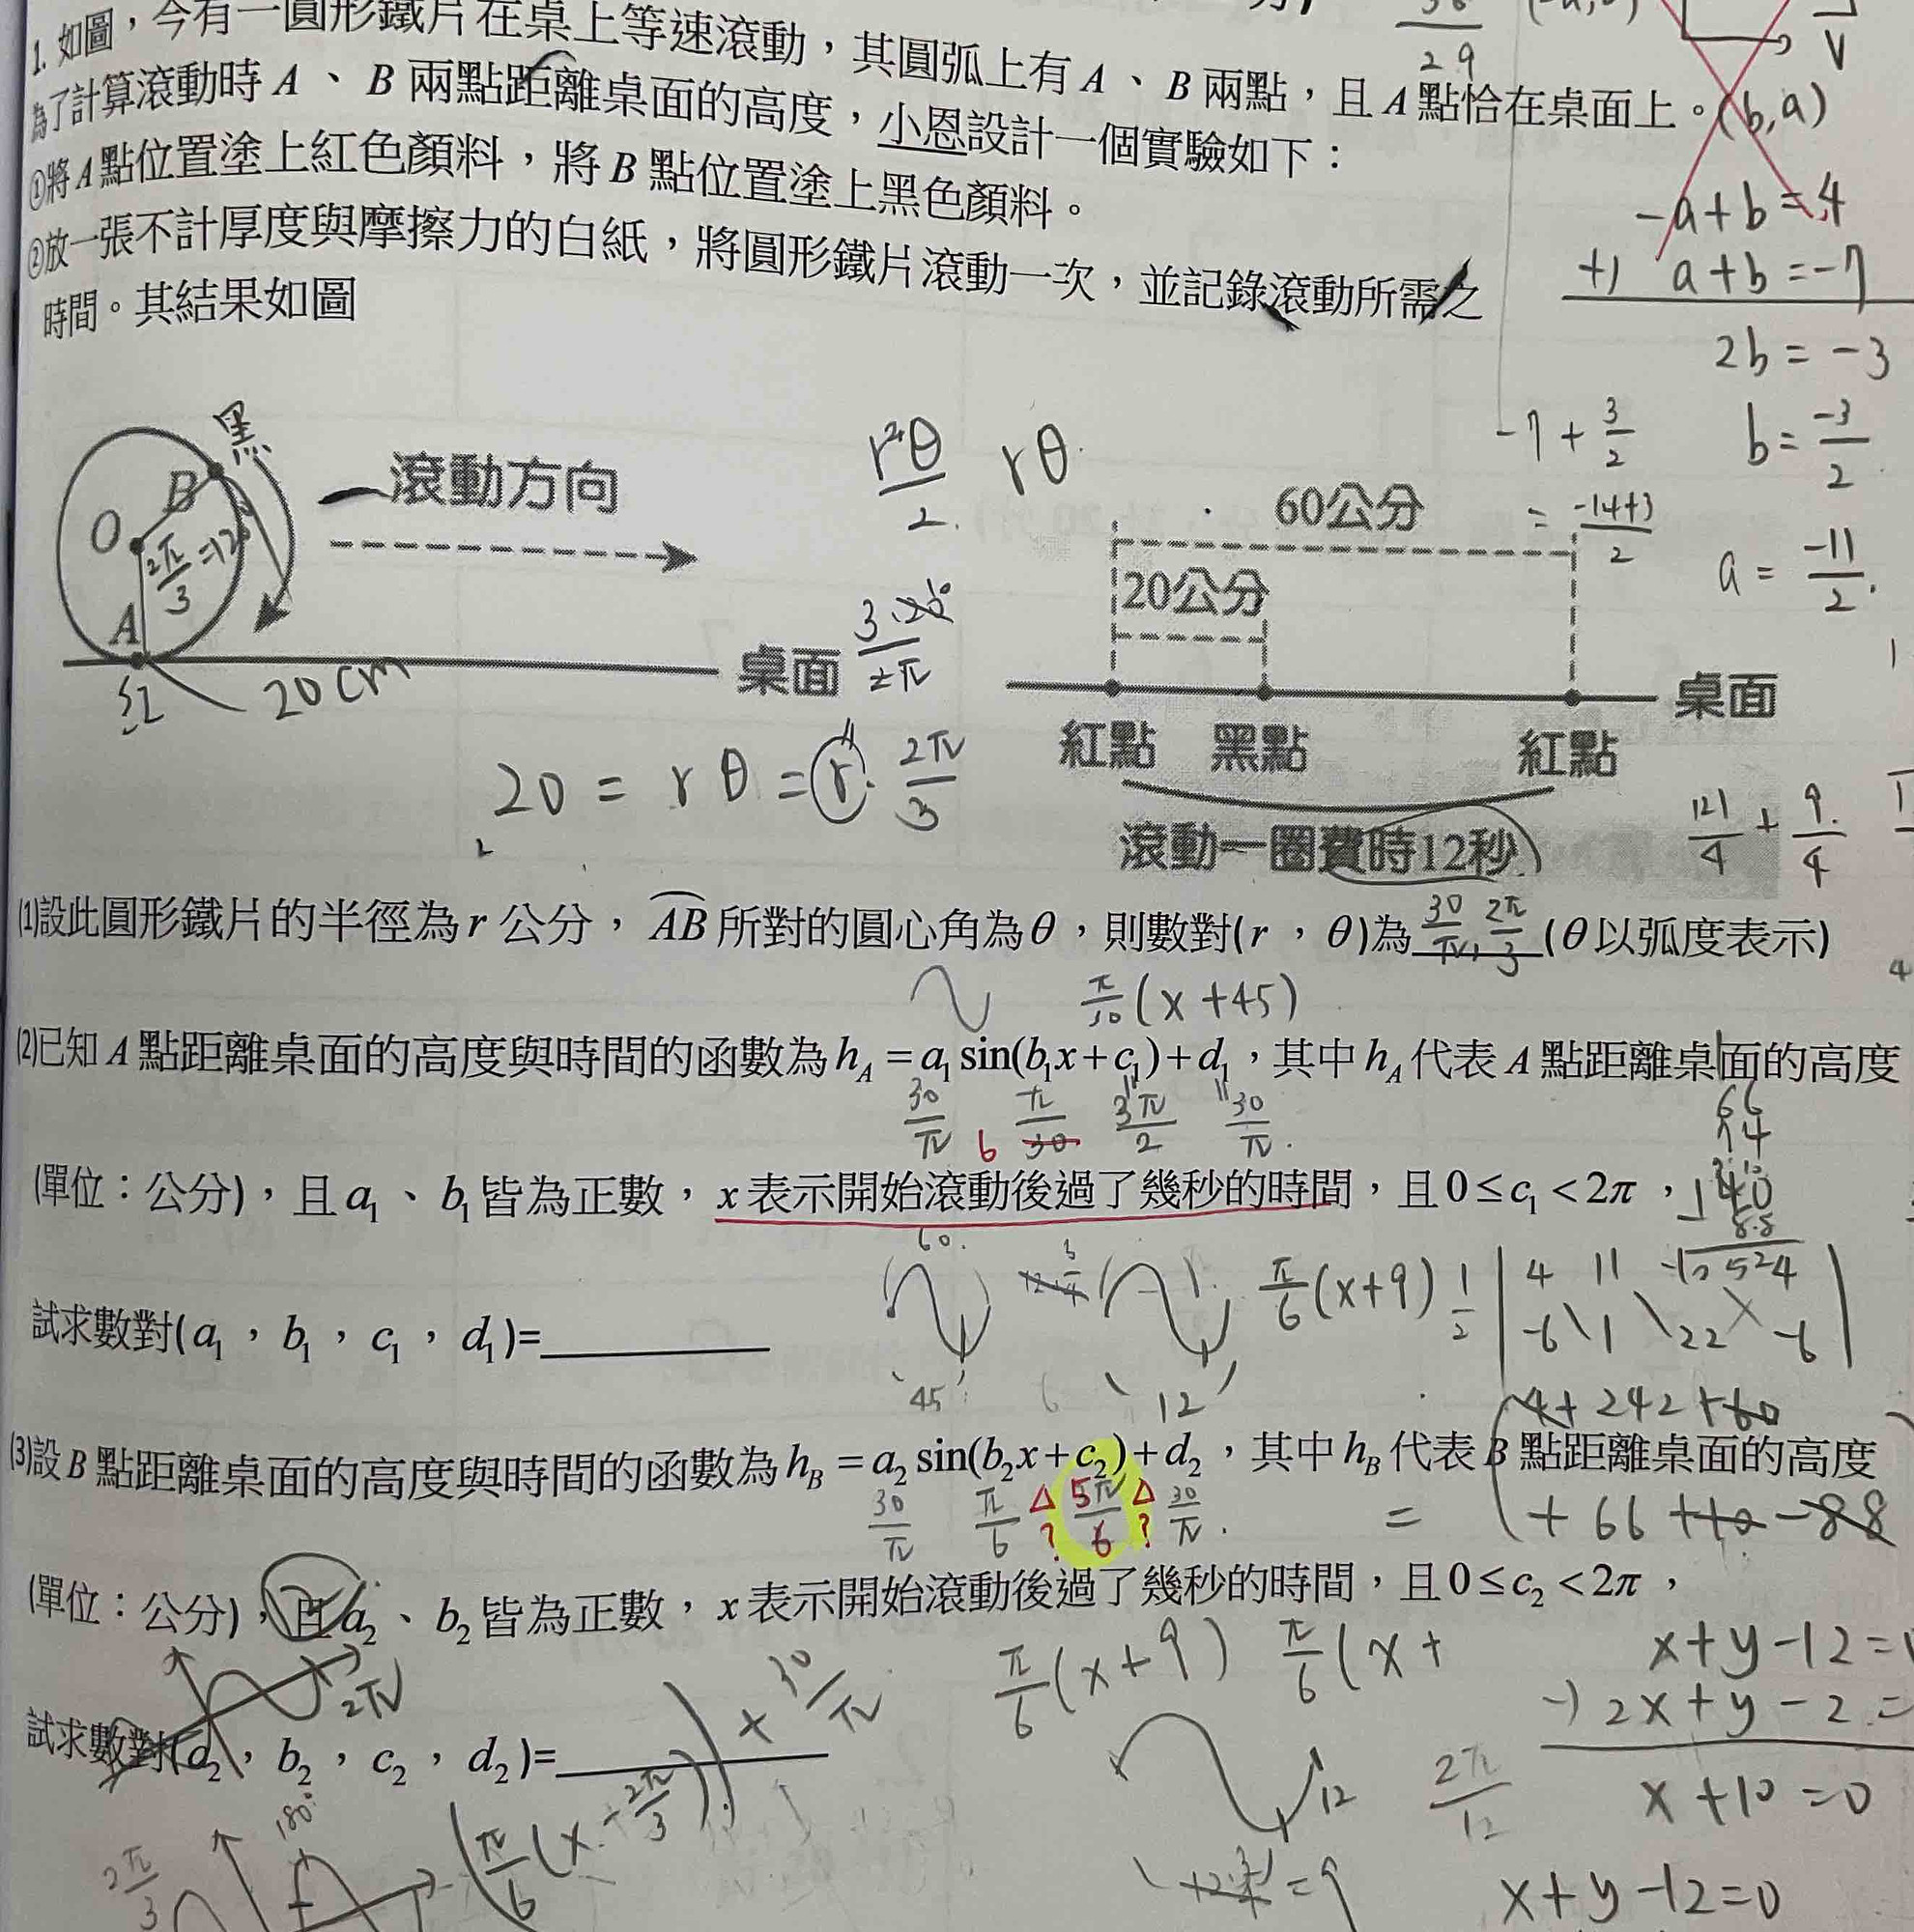 1. 如圖，今有一圓形鐵片在桌上等速滾動，其圓弧上有 A 、 B 兩點，且 A 點恰在桌面上。
為了計算滾動時 A 、 B 兩點距離桌面的高度，小恩設計一個實驗如下：
①將 A 點位置塗上紅色顏料，將 B 點位置塗上黑色顏料。
②放一張不計厚度與摩擦力的白紙，將圓形鐵片滾動一次，並記錄滾動所需之
時間。其結果如圖
29
(b,a)
-a+b=4
+) a+b=-7
2b=-3
b=-3/2
-7+3/2
=-14+3/2
a=-11/2.
黑
B
O
2π/3
A
紅
20cm
滾動方向
桌面
r²θ/2.
rθ.
20=rθ=r·2π/3
60公分
20公分
紅點 黑點 紅點
桌面
滾動一圈費時12秒
121/4+9/4
⑴設此圓形鐵片的半徑為 r 公分，AB 所對的圓心角為 θ，則數對(r ， θ)為 30/π, 2π/3 (θ以弧度表示)
π/30(x+45)
⑵已知 A 點距離桌面的高度與時間的函數為 h_A = a₁ sin(b₁x+c₁)+d₁，其中 h_A 代表 A 點距離桌面的高度
30/π 6 π/30 3π/2 30/π.
(單位：公分)，且 a₁ 、 b₁ 皆為正數， x 表示開始滾動後過了幾秒的時間，且 0≤c₁<2π，
60.
π/6(x+9)
1/2
4 11
-6 1 22 -6
試求數對(a₁ ， b₁ ， c₁ ， d₁)=
45
6
12
4+242+60
⑶設 B 點距離桌面的高度與時間的函數為 h_B = a₂ sin(b₂x+c₂)+d₂，其中 h_B 代表 B 點距離桌面的高度
30/π π/6 △? 5π/6 △? 30/π.
= +66+10-88
(單位：公分)，且 a₂ 、 b₂ 皆為正數， x 表示開始滾動後過了幾秒的時間，且 0≤c₂<2π，
2π
+30/π
π/6(x+9) π/6(x+
x+y-12=
-) 2x+y-2=
x+10=0
試求數對(a₂ ， b₂ ， c₂ ， d₂)=
12
2π/12
180°
2π/3
(π/6(x-2π/3))
=9
x+y-12=0